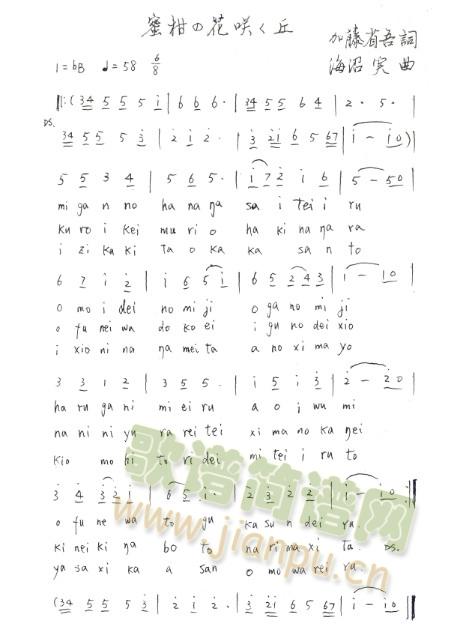 蜜柑の花咲く丘
加藤省吾 詞
1=bB ♩=58 6/8
海沼実 曲
‖:(34 5 5 5 i | 6 6 6 · | 34 5 5 6 4 | 2 · 5 ·
DS.
34 5 5 5 3 | 2 i 2 · | 3 2i 6 5 67 | i - i0)
5 5 3 4 | 5 6 5 · | i 7 2 i 6 | 5 - 50
mi ga n no ha na na sa i tei i ru
ku ro i kei mu ri o ha ki na na ra
i zi ka ki ta o ka ka sa n to
6 7 i 2 | i 6 5 i | 6 5 2 4 3 | i - i0
o mo i dei no mi ji o ga no mi ji
o fu nei wa do ko ei i gu no dei xio
i xio ni na na mei ta a no xi ma yo
3 3 1 2 | 3 5 5 · | i 5 i 3 | 2 - 20
ha ru ga ni mi ei ru a o i wu mi
na ni ni yu ra rei tei xi ma no ka nei
kio mo hi to ri dei mi tei i ru to
3 4 3 2 i | 6 5 i · | 2 3 2 2 · | i - i0 :‖
o fu ne wa to gu ka su n dei ru
ki nei ki na bo to na ri ma xi ta DS.
ya sa xi ka a san o mo wa rei ru
(34 5 5 5 3 | 2 i 2 · | 3 2i 6 5 67 | i - i0 ‖
歌谱简谱网
www.jianpu.cn